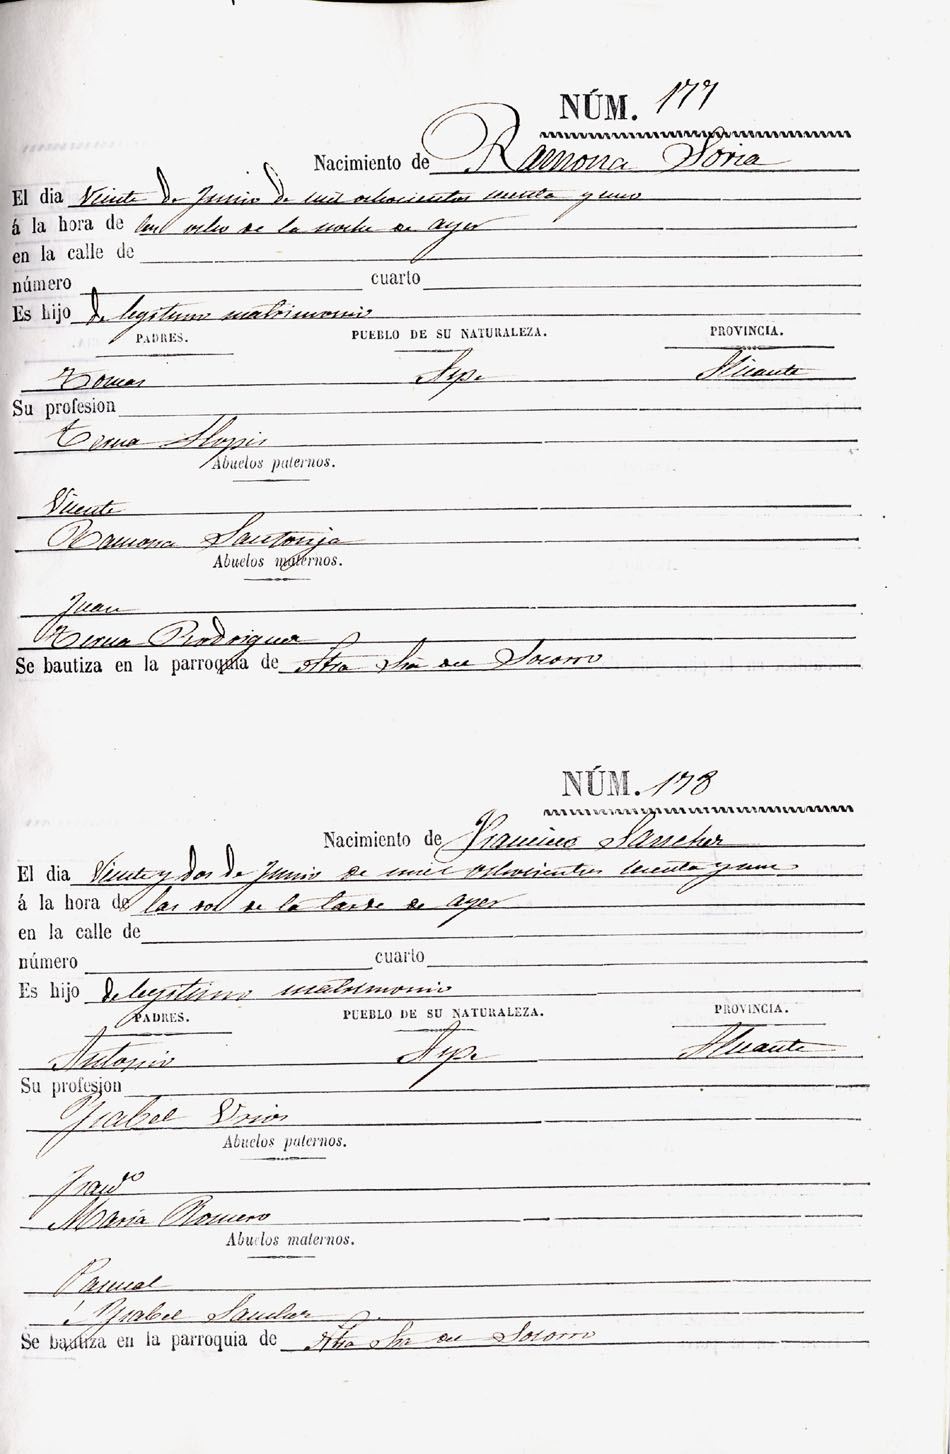 NÚM. 177
Nacimiento de Ramona Soria
El dia Veinte de Junio de mil ochocientos setenta y uno
á la hora de las ocho de la noche de ayer
en la calle de
número cuarto
Es hijo de legitimo matrimonio
PADRES. PUEBLO DE SU NATURALEZA. PROVINCIA.
Tomas Aspe Alicante
Su profesion
Teresa Llopis
Abuelos paternos.
Vicente
Ramona Santonja
Abuelos maternos.
Juan
Teresa Rodriguez
Se bautiza en la parroquia de Ntra Sra del Socorro
NÚM. 178
Nacimiento de Francisco Sanchez
El dia Veinte y dos de Junio de mil ochocientos setenta y uno
á la hora de las dos de la tarde de ayer
en la calle de
número cuarto
Es hijo de legitimo matrimonio
PADRES. PUEBLO DE SU NATURALEZA. PROVINCIA.
Antonio Aspe Alicante
Su profesion
Ysabel Urios
Abuelos paternos.
Franco
Maria Romero
Abuelos maternos.
Pascual
Ysabel
Se bautiza en la parroquia de Ntra Sra del Socorro